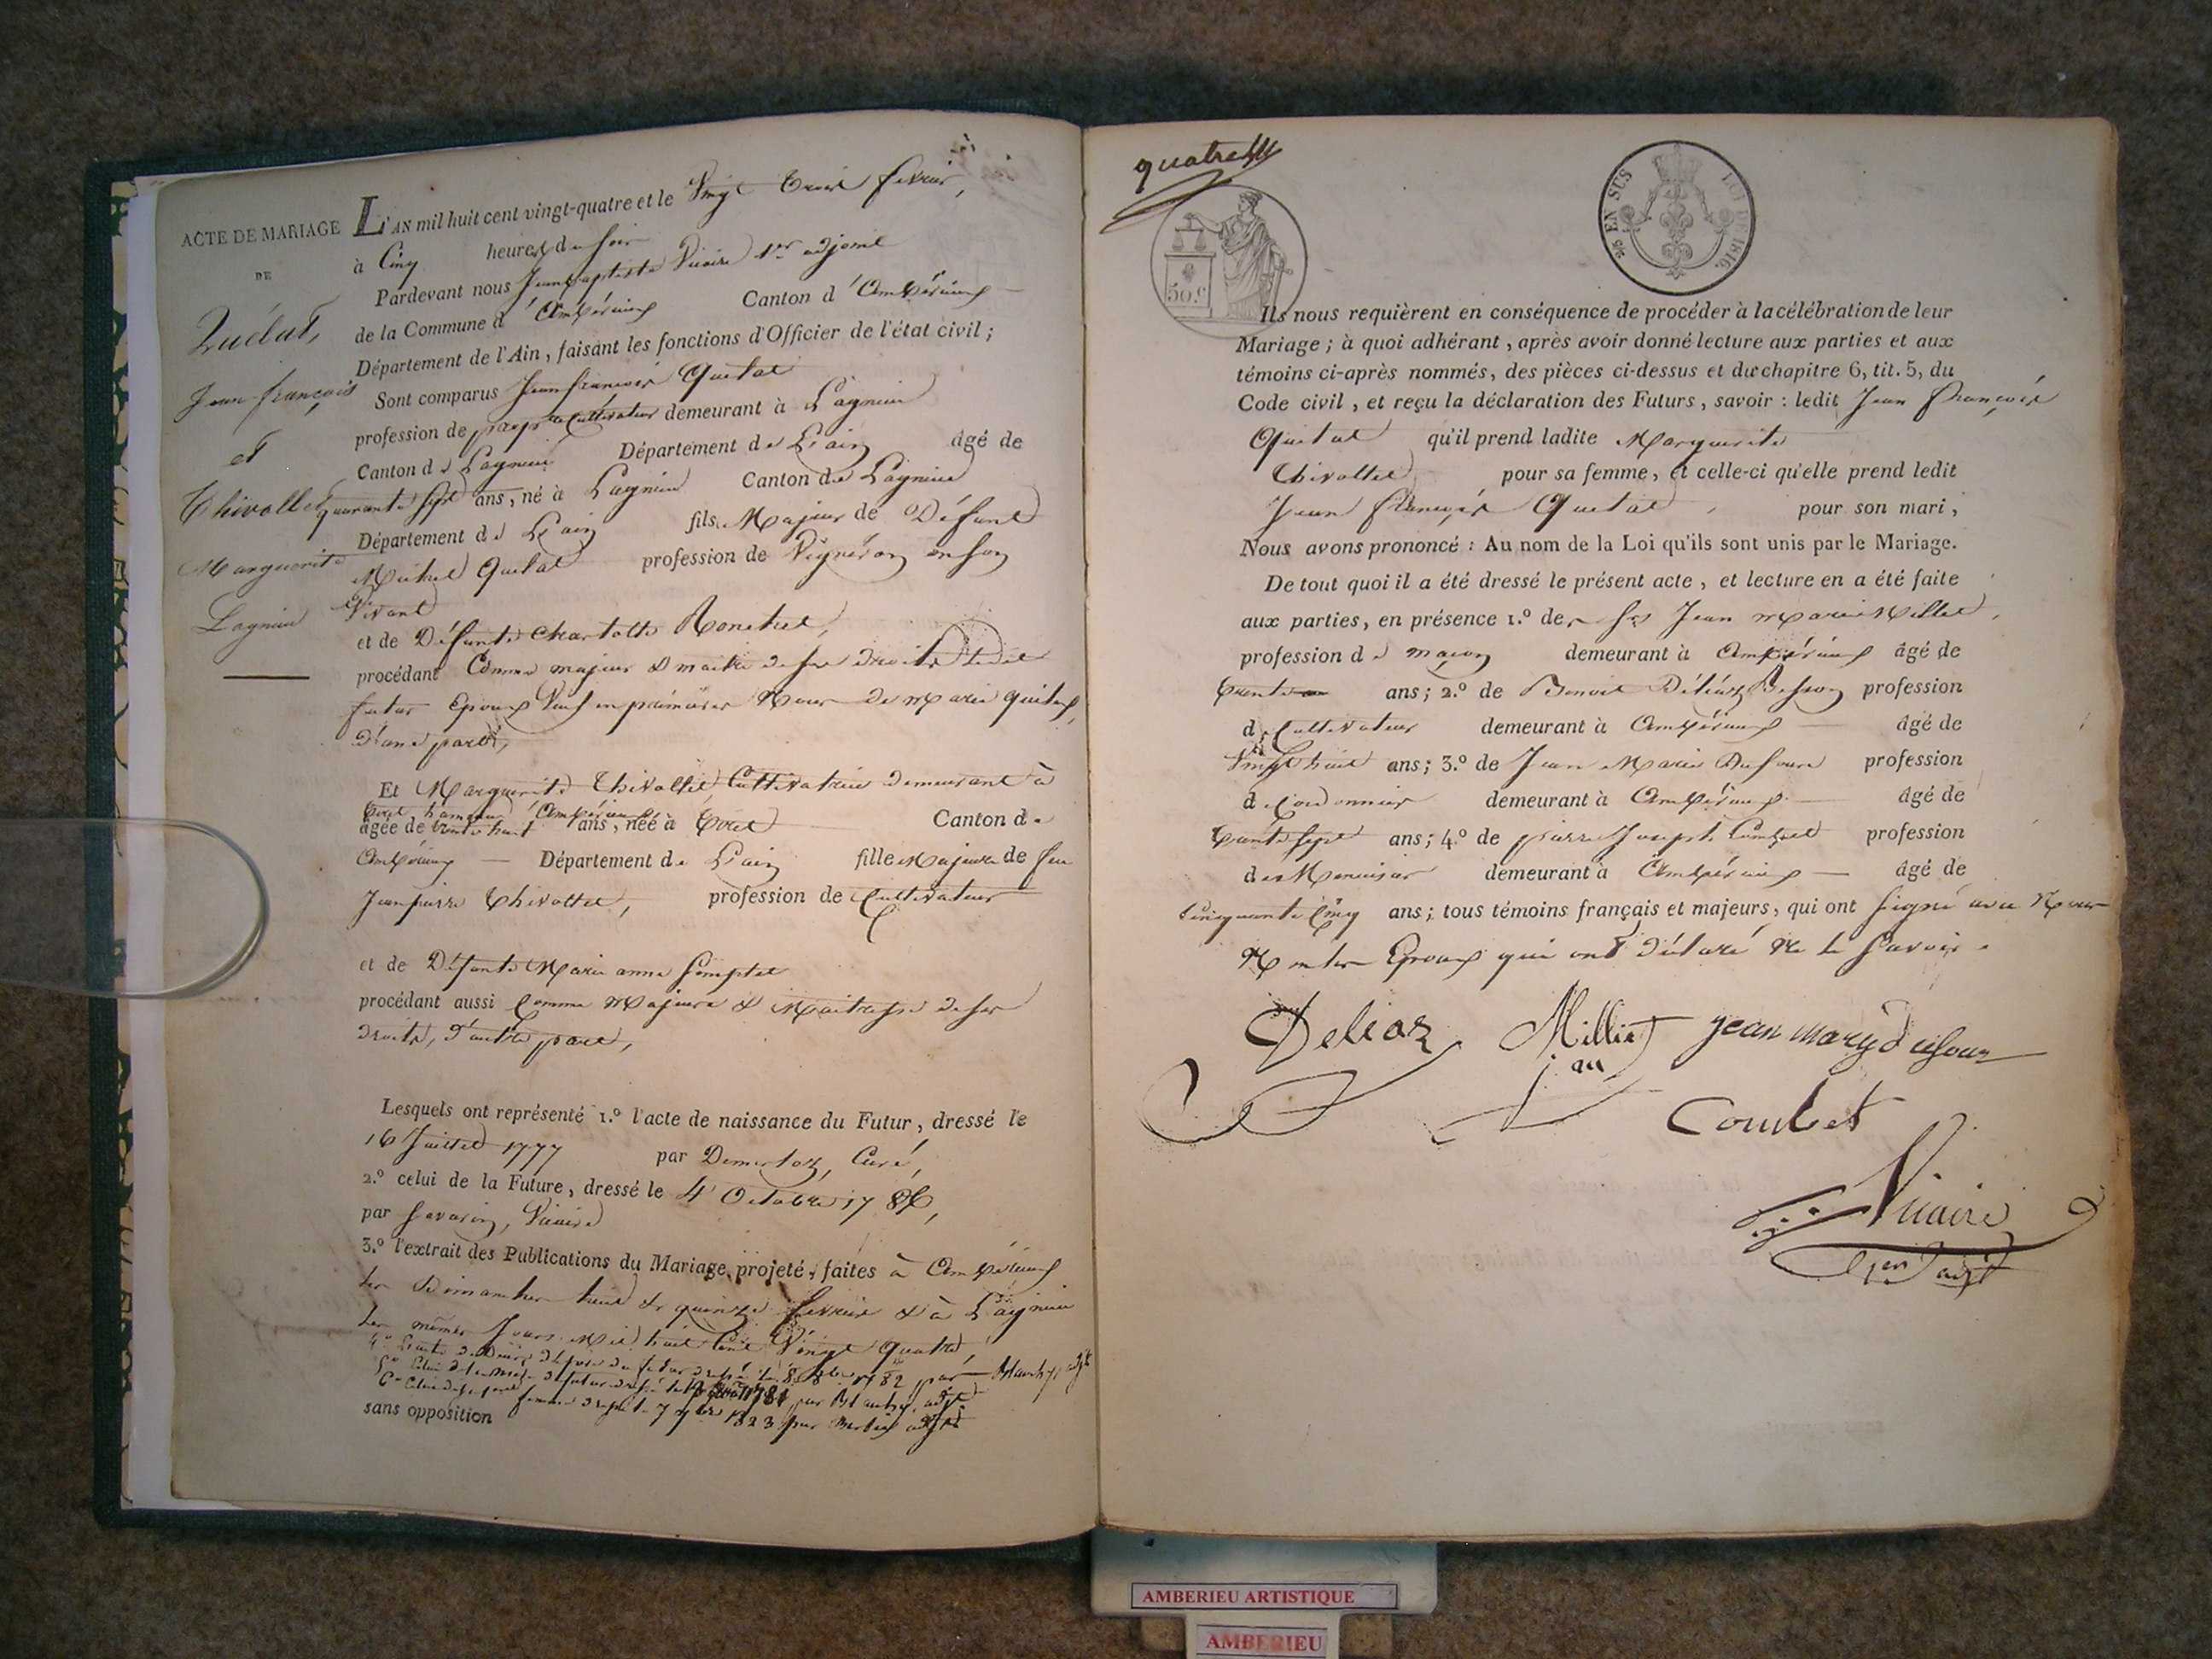 ACTE DE MARIAGE
DE
Quélat,
Jean-françois
et
Chivollet
Marguerite
Lagnieu
L'AN mil huit cent vingt-quatre et le Vingt trois fevrier,
à Cinq heures du Soir
Pardevant nous Jean baptiste Vicaire 1er adjoint
de la Commune d'Ambérieux Canton d'Ambérieux
Département de l'Ain, faisant les fonctions d'Officier de l'état civil;
Sont comparus Jean françois Quelat
profession de propre Cultivateur demeurant à Lagnieu
Canton de Lagnieu Département de L'ain âgé de
quarante Sept ans, né à Lagnieu Canton de Lagnieu
Département de L'ain fils Majeur de Défunt
Michel Quelat profession de Vigneron en Son
Vivant
et de Défunte Charlotte
procédant Comme majeur & maitre de ses droits Ledit
futur Epoux Veuf en prémières Noces de Marie
D'une part,
Et Marguerite Chivollet Cultivatrice demeurant à
Tiret hameau d'Ambérieux
âgée de trente huit ans, née à Tiret Canton d.
Ambérieux Département de L'ain fille Majeure de feu
Jean pierre Chivollet, profession de Cultivateur
et de Défunte Marie anne
procédant aussi Comme Majeure & Maitresse de ses
droits, d'autre part,
Lesquels ont représenté 1.º l'acte de naissance du Futur, dressé le
16 Juillet 1777 par Curé,
2.º celui de la Future, dressé le 4 Octobre 17
par Savarin, Vicaire
3.º l'extrait des Publications du Mariage projeté, faites à Ambérieux
les Dimanches huit & quinze fevrier & à Lagnieu
les mêmes Jours Mil huit Cent Vingt quatre,
4º L'acte de Décès du père du futur dressé le 8 par
5º Celui de la Mère du futur dressé le par adjt
6º Celui de sa femme dressé le 7 1823 par adjt
sans opposition
quatre
50.c
EN SUS LOI DE 1816.
Ils nous requièrent en conséquence de procéder à la célébration de leur
Mariage; à quoi adhérant, après avoir donné lecture aux parties et aux
témoins ci-après nommés, des pièces ci-dessus et du chapitre 6, tit. 5, du
Code civil, et reçu la déclaration des Futurs, savoir: ledit Jean François
Quelat qu'il prend ladite Marguerite
Chivollet pour sa femme, et celle-ci qu'elle prend ledit
Jean François Quelat pour son mari,
Nous avons prononcé: Au nom de la Loi qu'ils sont unis par le Mariage.
De tout quoi il a été dressé le présent acte, et lecture en a été faite
aux parties, en présence 1.º de Jean Marie Milliet,
profession de maçon demeurant à Ambérieux âgé de
trente ans; 2.º de Benoit Déléaz Besson profession
de Cultivateur demeurant à Ambérieux âgé de
Vingt huit ans; 3.º de Jean Marie Dufour profession
de Cordonnier demeurant à Ambérieux âgé de
trente Sept ans; 4.º de pierre Joseph Combet profession
de Menuisier demeurant à Ambérieux âgé de
Cinquante Cinq ans; tous témoins français et majeurs, qui ont Signé avec Nous
Non les Epoux qui ont déclaré Ne le Savoir.
Deleaz Milliet jean mary dufour
Combet
Vicaire
1er adjt
AMBERIEU ARTISTIQUE
AMBERIEU